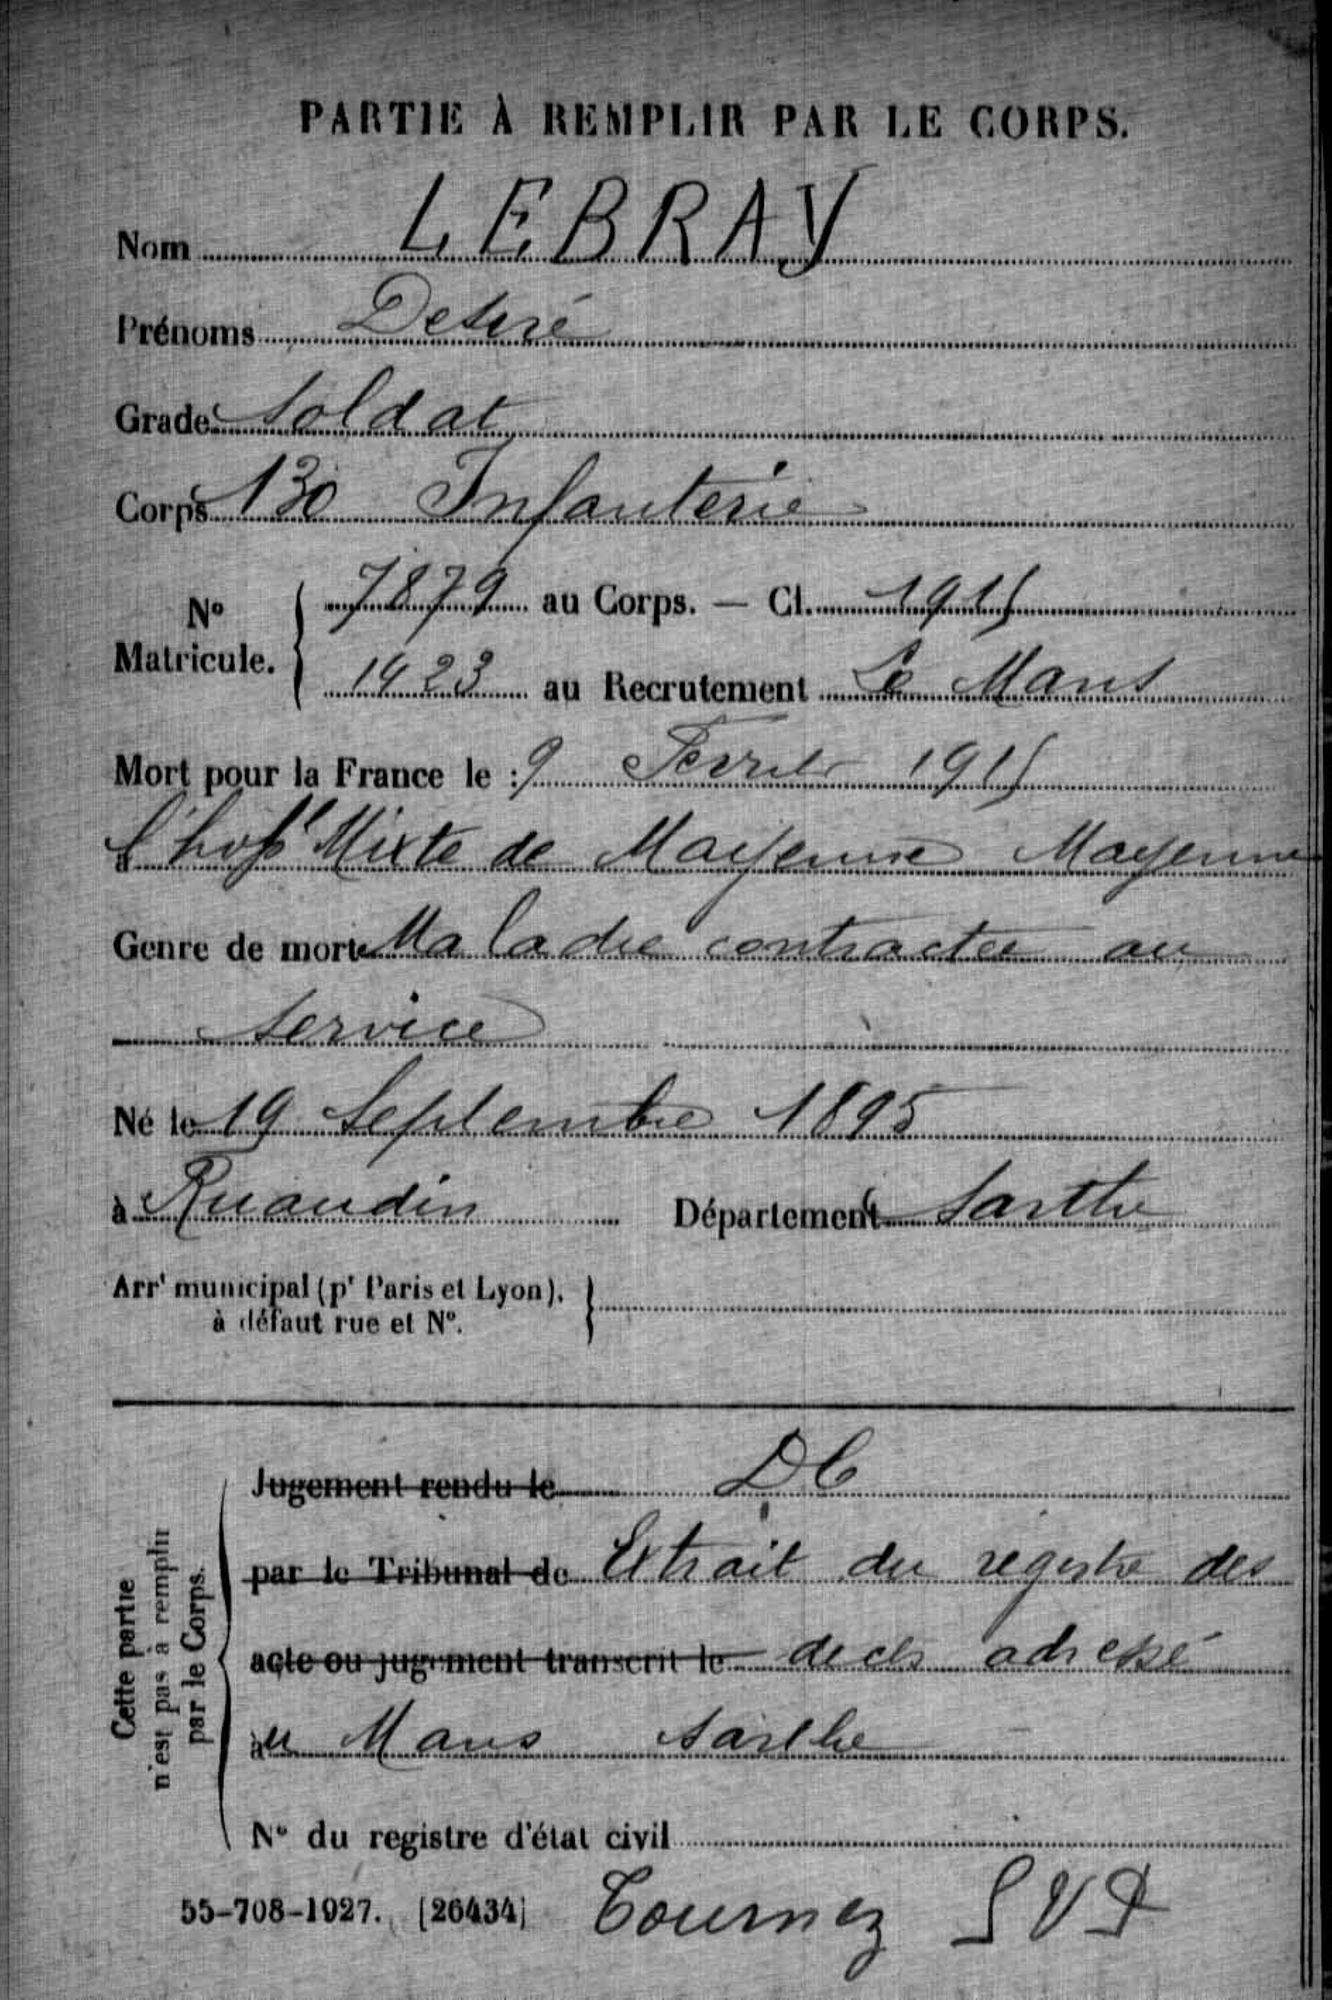 PARTIE À REMPLIR PAR LE CORPS.
Nom LEBRAY
Prénoms Desiré
Grade Soldat
Corps 130 Infanterie
N° Matricule. 7879 au Corps. — Cl. 1915
1423 au Recrutement Le Mans
Mort pour la France le : 9 Fevrier 1915
à l'hop¹ Mixte de Mayenne Mayenne
Genre de mort Maladie contractée au
service
Né le 19 Septembre 1895
à Ruaudin Département Sarthe
Arrᵗ municipal (pʳ Paris et Lyon),
à défaut rue et N°.
Cette partie
n'est pas à remplir
par le Corps.
Jugement rendu le DC
par le Tribunal de Extrait du registre des
acte ou jugement transcrit le deces adressé
au Mans Sarthe
N° du registre d'état civil
55-708-1927. [26434] Tournez SVP